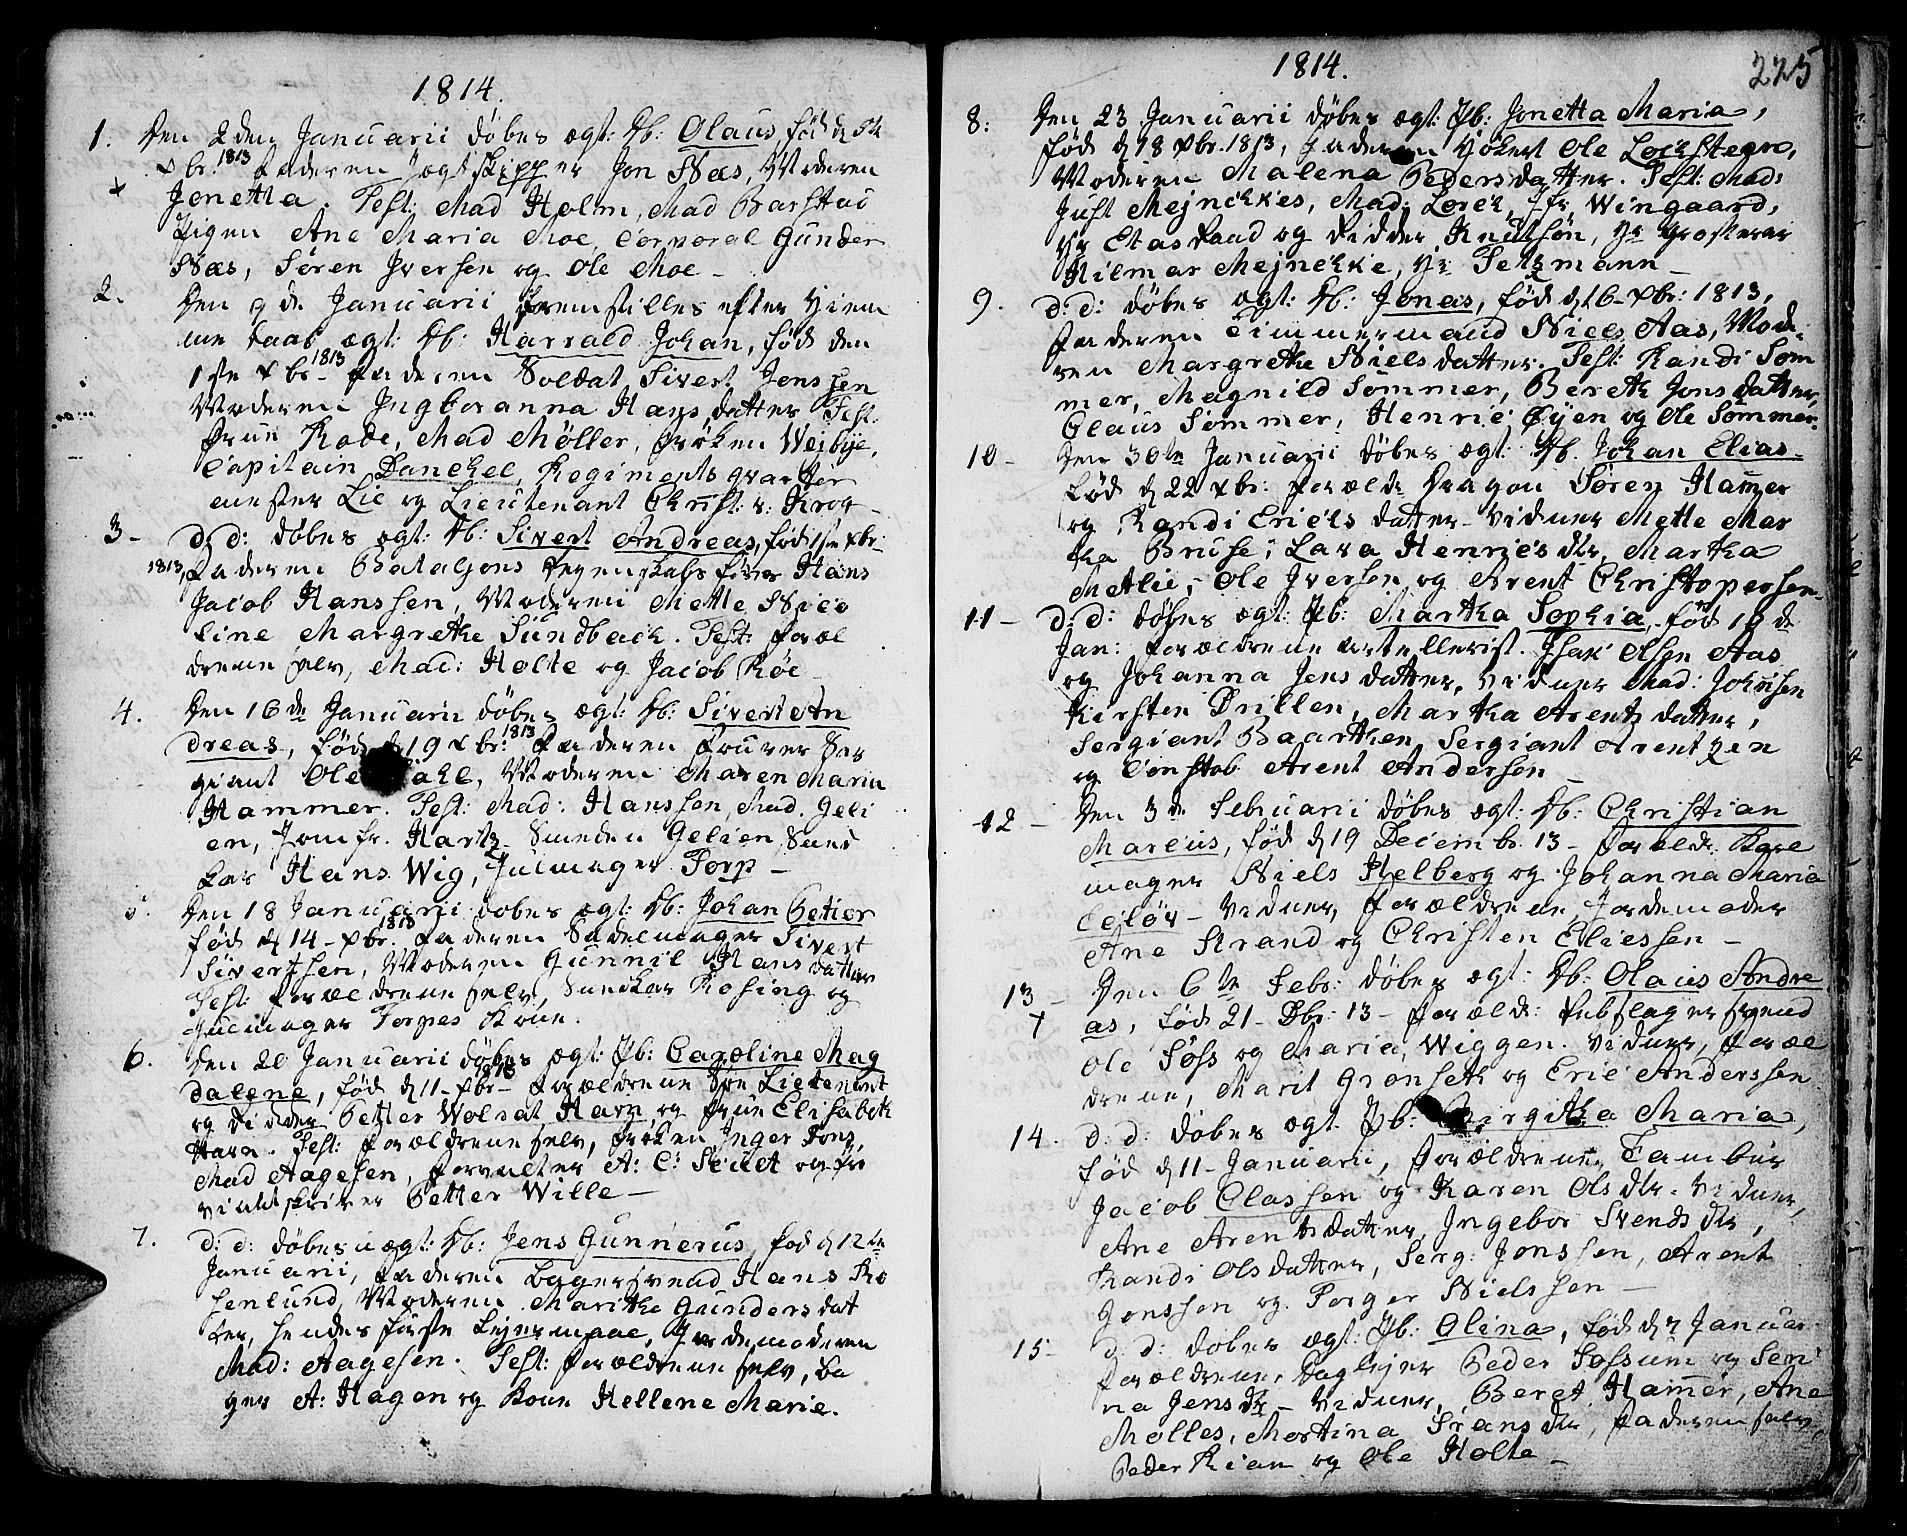 1814.
1. Den 2den Januarii døbes ægt: Db: Olaus, fød d 5te
xbr. 1813 Faderen Jægt skipper Jon Næs, Moderen
Jonetta. Test: Mad Holm, Mad Barstad
Pigen Ane Maria Moe, Corporal Gunder
Næs, Søren Iversen og Ole Moe –
2. Den 9 de Januarii fremstilles efter Hiem
me daab ægt: Db: Harrald Johan, fød den
1ste xbr 1813 Faderen Soldat Sivert Jenssen
Moderen Ingboranna Hans datter Test.
Frue Rode, Mad Møller, Frøken Wejbye,
Capitain Danckel, Regiments qvarteer
mester Lie og Lieutenant Christ: v: Krog –
3 – d: d: døbes ægt: Db: Sivert Andreas, fød 1ste xbr:
1813, Faderen Bataljons Regenskabsfører Hans
Jacob Hanssen, Moderen Mette Nico
line Margrethe Sundbach. Test: Foræl
drene selv, Mad: Holte og Jacob Røe
4. Den 16 de Januarii døbes ægt: Db: Sivert An
dreas, fød d 19 xbr: 1813 Faderen Fourer Ser
giant Ole Dahl, Moderen Maren Maria
Hammer. Test: Mad: Hanssen, Mad. Geli
en, Jomfr. Hartz Smeden Gelien, Sned
ker Hans Wig, Juulmager Torp –
5. Den 18 Januarii døbes ægt: Db: Johan Petter
fød d 14 – xbr. 1813 Faderen Sadelmager Sivert
Sivertsen, Moderen Gunnil Hans datter
Test: Forældrene selv, Snedker Rosing og
Juulmager Torpes Kone.
6. Den 20 Januarii døbes ægt: Pb: Caroline Mag
dalene, fød d 11 – xbr – 1813 Forældrene Søe Lieutenant
og Ridder Petter Wolrat Harn og Frue Elisabeth
Harn. Test: Forældrene selv, Frøken Inger
Mad Aagesen, Forvalter A: C: og Pr
viantskriver Petter Wille –
7. d: d: døbes uægt: Db: Jens Gunnerus, fød d 12te
Januarii, Faderen Bagersvend Hans Ro
senlund, Moderen Maritha Gunders dat
ter, hendes første Lejermaal, Jordemoderen
Mad: Aagesen. Test: Forældrene selv, Ba
ger A: Hagen og Kone Hellene Marie.
1814.
225
8: Den 23 Januarii døbes ægt: Pb: Jonetta Maria,
fød d 18 xbr. 1813, Faderen Høker Ole Lochstegn,
Moderen Malena Peders datter. Test: Mad:
Just Mejnckes, Mad: Lorck, Jfr Wingaard,
Hr Etats Raad og Ridder Knudtzøn, Hr Grosserer
Hilmar Mejncke, Hr Telsmann –
9. d: d: døbes ægt: Db: Jonas, fød d 16 – xbr: 1813,
Faderen Timmermand Niels Aas, Mode
ren Margrethe Nielsdatter. Test: Randi Som
mer, Magnild Sommer, Bereth Jonsdatter,
Claus Sommer, Henric Øyen og Ole Sommer.
10 – Den 30te Januarii døbes ægt: Db. Johan Elias –
fød d 22 xbr: Forældr Dragon Søren Hammer
og Randi Erichs datter – Vidner Mette Mar
tha Bruse, Lava Henrics dtr, Martha
Metlie, Ole Iversen og Arent Christopersen –
11 – d: d: døbes ægt: Pb: Martha Sophia, fød 18 de
Jan: Forældrene Artellerist. Isak Olsen Aas
og Johanna Jens datter, Vidner Mad: Johnsen
Kirsten Drillen, Martha Arentz datter,
Sergiant Baarthen, Sergiant Arentzen
og Constab Arent Andersøn –
12 – Den 3 de Februarii døbes ægt: Db: Christian
Marcus, fød d 19 Decembr. 13 – Forældr. Kare
mager Niels Helberg og Johanna Maria
– Vidner, Forældrene, Jordemoder
Ane Strand og Christen Eliessen –
13 – Den 6 te Febr: døbes ægt: Db: Olaus Andre
as, fød 21 – Dbr: 13 – Forældr: Rebslagersvend
Ole Føss og Maria Wiggen. Vidner, Foræl
drene, Marit Grønseth og Eric Anderssen
14. d: d: døbes ægt Pb: Birgitha Maria,
fød d 11 – Januarii, Forældrene, Tambur
Jacob Classen og Karen Ols dtr. Vidner,
Ane Arentsdatter, Ingebor Svends dtr,
Randi Olsdatter, Serg: Jonssen, Arent
Gonssen og Torger Nielssen –
15 d: d: døbes ægt: Pb: Olina, fød d 7 Januar.
Forældrene, Daglejer Peder Fossum og Seri
na Jens dtr – Vidner, Beret Hammer, Ane
Mølles, Martina Frans dtr, Faderen selv,
Peder Rian og Ole Holte –